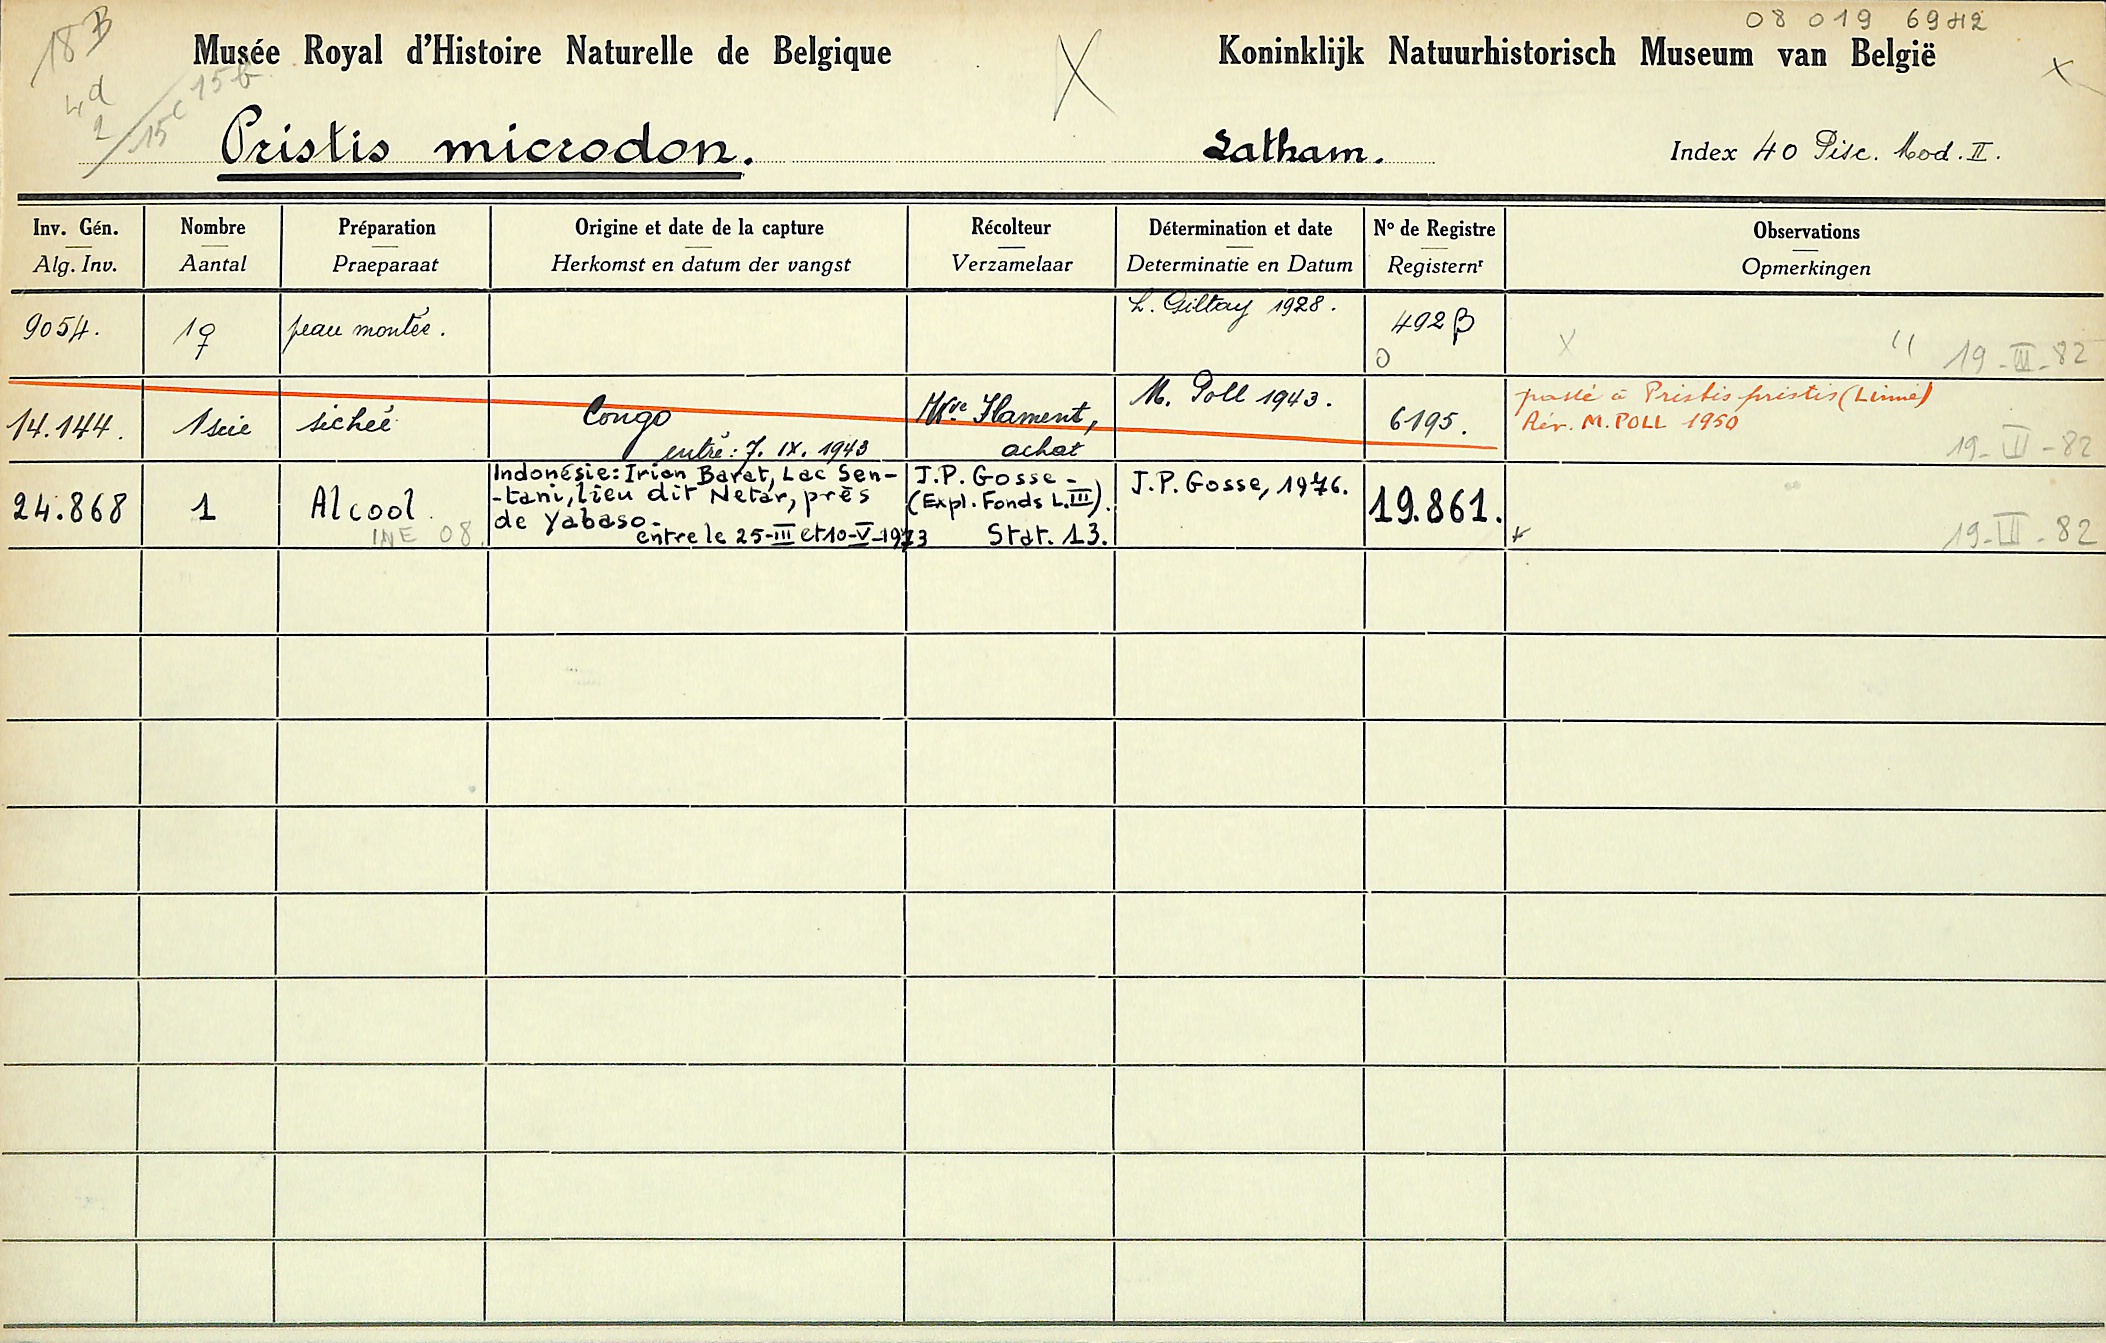 08 019 6942
18 B
Musée Royal d'Histoire Naturelle de Belgique
Koninklijk Natuurhistorisch Museum van België
X
x
4d
2
15c 15b
Pristis microdon.
Latham.
Index 40 Pisc. Mod. II.
Inv. Gén.
Alg. Inv.
Nombre
Aantal
Préparation
Praeparaat
Origine et date de la capture
Herkomst en datum der vangst
Récolteur
Verzamelaar
Détermination et date
Determinatie en Datum
Nº de Registre
Registernr
Observations
Opmerkingen
9054.
1♀
peau montée.
L. Giltay 1928.
492 β
O
X
"
19-III-82
14.144.
1 scie
séchée
Congo
entré: 7. IX. 1943
Flament,
achat
M. Poll 1943.
6195.
passé à Pristis pristis (Linné)
Rév. M. POLL 1950
19-III-82
24.868
1
Alcool
INE 08.
Indonésie: Irian Barat, Lac Sen-
-tani, lieu dit Netar, près
de Yabaso.
entre le 25-III et 10-V-1973
J.P. Gosse-
(Expl. Fonds L.III).
Stat. 13.
J.P. Gosse, 1976.
19.861.
x
19-III-82